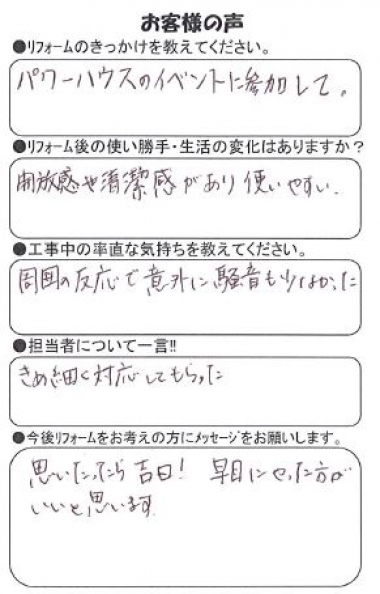 お客様の声
●リフォームのきっかけを教えてください。
パワーハウスのイベントに参加して。
●リフォーム後の使い勝手・生活の変化はありますか?
開放感や清潔感があり使いやすい.
●工事中の率直な気持ちを教えてください。
周囲の反応で意外に騒音も少なかった
●担当者について一言!!
きめ細く対応してもらった
●今後リフォームをお考えの方にメッセージをお願いします。
思いたったら吉日! 早目にやった方が
いいと思います